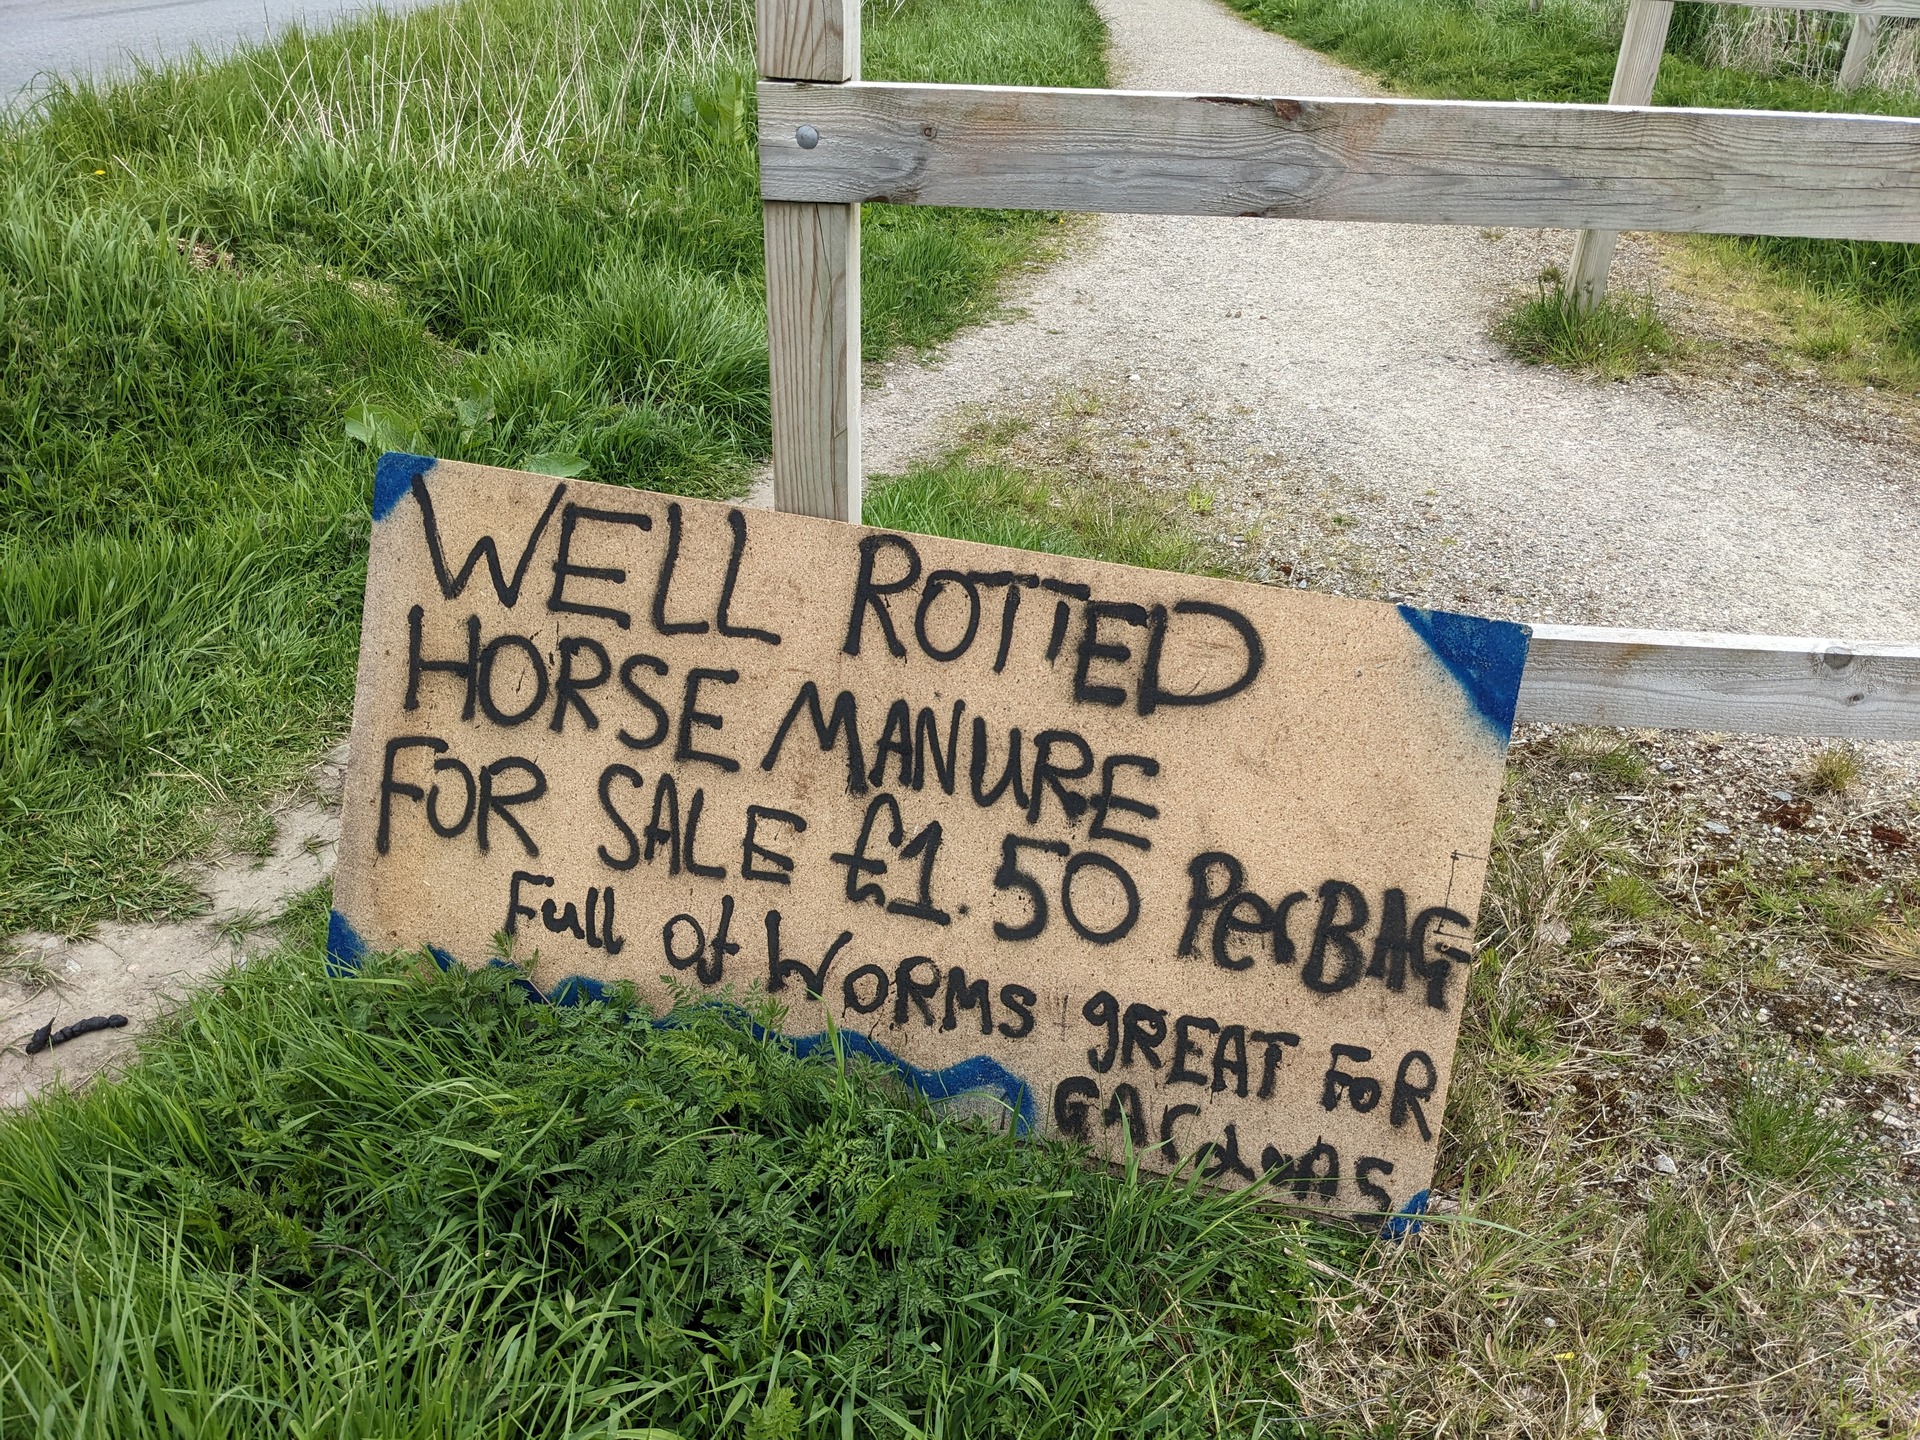 WELL ROTTED
HORSE MANURE
FOR SALE £1.50 PerBAG
Full of WORMS gREAT FoR
GArdens